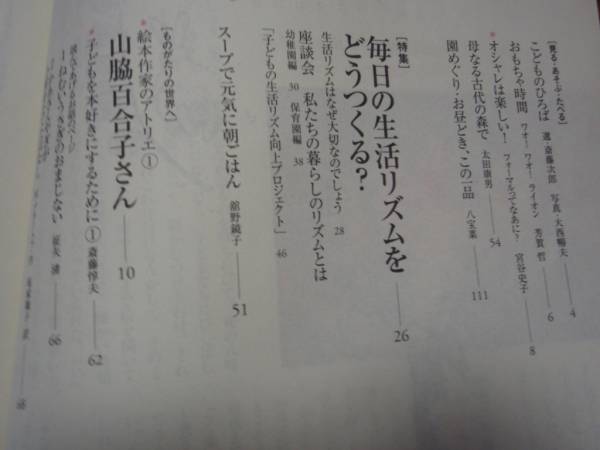 ［見る・あそぶ・たべる］
こどものひろば 選 斎藤次郎 写真・大西暢夫 4
おもちゃ時間 ワオ！ワオ！ライオン 秀賀 哲 6
＊オシャレは楽しい！ フォーマルってなあに？ 宮谷史子 8
母なる古代の森で 太田康男 54
園めぐり・お昼どき、この一品 八宝菜 111
［特集］
毎日の生活リズムを
どうつくる？ 26
生活リズムはなぜ大切なのでしょう 28
座談会 私たちの暮らしのリズムとは
幼稚園編 30 保育園編 38
「子どもの生活リズム向上プロジェクト」 46
スープで元気に朝ごはん 舘野鏡子 51
［ものがたりの世界へ］
＊絵本作家のアトリエ①
山脇百合子さん 10
＊子どもを本好きにするために① 斎藤惇夫 62
読んであげるお話のページ
66
68